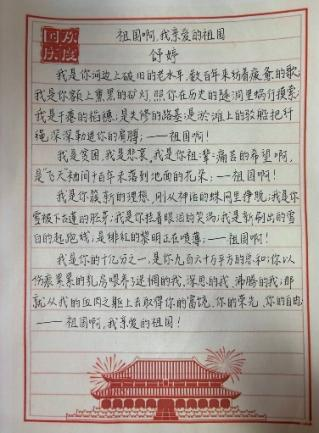 欢度国庆
祖国啊,我亲爱的祖国
舒婷
我是你河边上破旧的老水车,数百年来纺着疲惫的歌
我是你额上熏黑的矿灯,照你在历史的隧洞里蜗行摸索
我是干瘪的稻穗;是失修的路基;是淤滩上的驳船把纤
绳深深勒进你的肩膊;——祖国啊!
我是贫困,我是悲哀。我是你祖辈痛苦的希望啊,
是飞天袖间千百年未落到地面的花朵;——祖国啊!
我是你簇新的理想,刚从神话的蛛网里挣脱;我是你
雪被下古莲的胚芽;我是你挂着眼泪的笑涡;我是新刷出的雪
白的起跑线;是绯红的黎明正在喷薄;——祖国啊!
我是你的十亿分之一,是你九百六十万平方的总和;你以
伤痕累累的乳房喂养了迷惘的我、深思的我、沸腾的我;那
就从我的血肉之躯上去取得你的富饶、你的荣光、你的自由
——祖国啊,我亲爱的祖国!